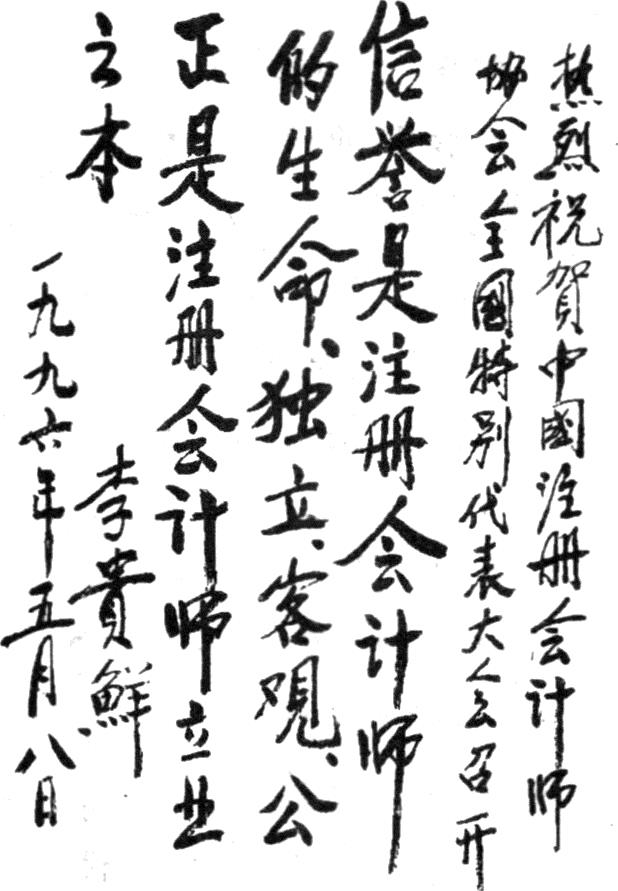 热烈祝贺中國注册会计师
协会全國特别代表大会召开
信誉是注册会计师
的生命、独立、客观、公
正是注册会计师立业
之本
李貴鲜
一九九六年五月八日